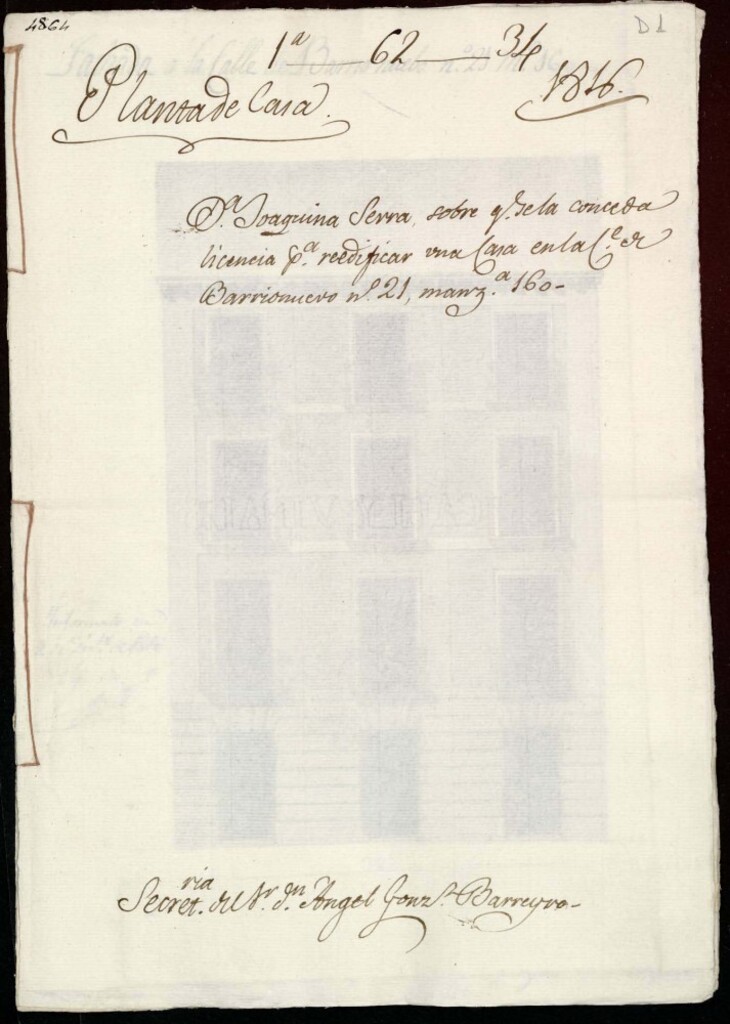 4864
D 1
1ª — 62 — 34
Planta de Casa.
1816.
D.ª Joaquina Serra, sobre q.e se la conceda
licencia p.ª reedificar una Casa en la C.e de
Barrionuevo n.º 21, manz.ª 160-
Secret.ria del S.r d.n Angel Gonz.z Barreyro-